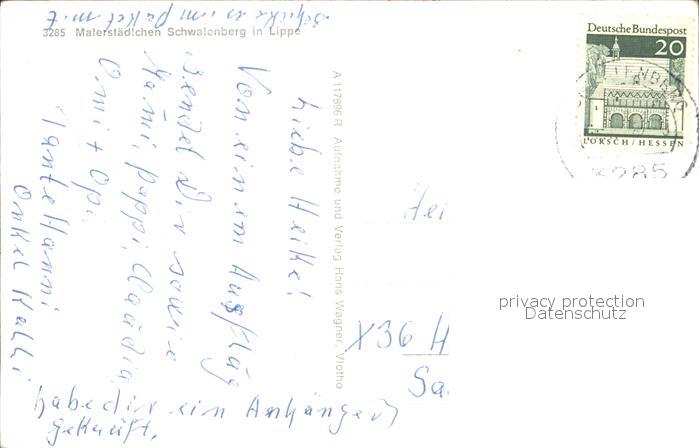 schicke es im paket mit
3285 Malerstädtchen Schwalenberg in Lippe
Liebe Heike!
Von einem Ausflug
sendet Dir sowie
Mami, Pappi, Claudia,
Omi + Opi.
Tante Hanni
Onkel Kalli
habe dir ein Anhänger
gekauft.
A 117896 R Aufnahme und Verlag Hans Wagner, Vlotho
Deutsche Bundespost
20
LORSCH/HESSEN
3285
Hei
X36 H
Sa
privacy protection
Datenschutz